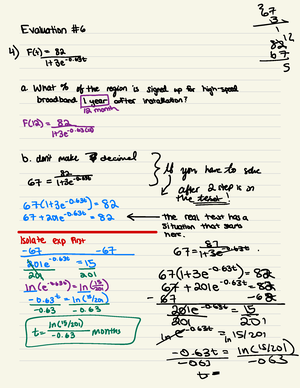 Evaluation #6
67
3
1
12
82
67
5
4) F(t) = 82
1+3e^-0.63t
a. What % of the region is signed up for high-speed
broadband 1 year after installation?
12 month
F(12) = 82
1+3e^-0.63(12)
b. don't make decimal
67 = 82
1+3e^-0.63t
If you have to solve
after 2 step is on
the test!
67(1+3e^-0.63t) = 82
67 + 201e^-0.63t = 82
the real test has a
situation that starts
here.
Isolate exp first
-67 -67
201e^-0.63t = 15
201 201
ln(e^-0.63t) = ln(15/201)
-0.63t = ln(15/201)
-0.63 -0.63
t = ln(15/201) months
-0.63
67 = 82
1+3e^-0.63t
67(1+3e^-0.63t) = 82
67 + 201e^-0.63t = 82
-67 -67
201e^-0.63t = 15
201 201
ln e^-0.63t = ln 15/201
-0.63t = ln(15/201)
-0.63 -0.63
t =